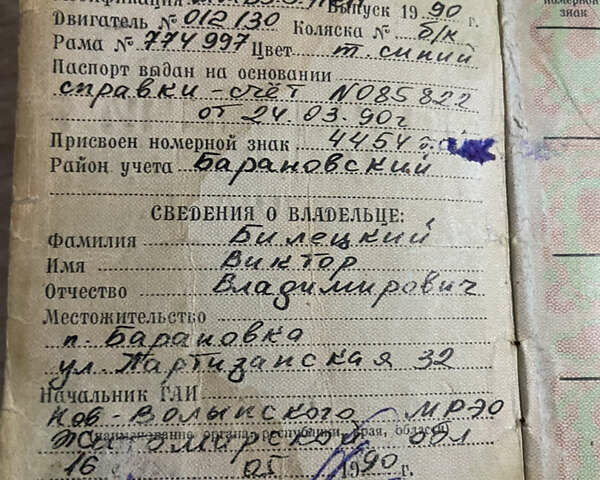 Выпуск 1990 г.
Двигатель № 012130 Коляска № б/к
Рама № 774997 Цвет т. синий
Паспорт выдан на основании
справки-счёт N085822
от 24.03.90г
Присвоен номерной знак 4454
Район учета Барановский
СВЕДЕНИЯ О ВЛАДЕЛЬЦЕ:
Фамилия Билецкий
Имя Виктор
Отчество Владимирович
Местожительство
п. Барановка
ул. Партизанская 32
Начальник ГАИ
Нов-Волынского МРЭО
(наименование органа, республики, края, области)
Житомирской обл
16 05 1990 г.
номерной
знак